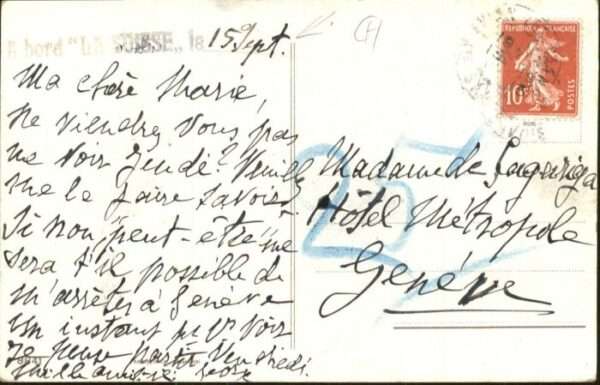 A bord "LA SUISSE", le 15 Sept.
Ma chère Marie,
Ne viendrez vous pas
me voir Jeudi? Veuillez
me le faire savoir.
Si non, peut-être me
sera t'il possible de
m'arrêter à Genève
un instant pr vs voir
Je pense partir Vendredi.
Mille amitiés
CH
RÉPUBLIQUE FRANÇAISE
10c
POSTES
25
Madame de
Hôtel Métropole
Genève